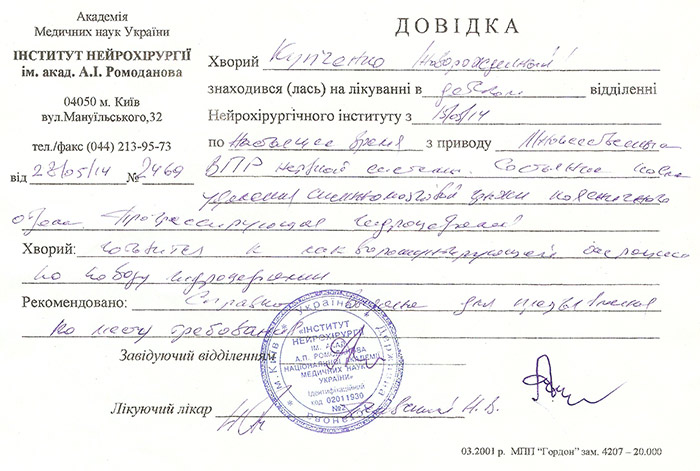 Академія
Медичних наук України
ІНСТИТУТ НЕЙРОХІРУРГІЇ
ім. акад. А.І. Ромоданова
04050 м. Київ
вул.Мануїльського,32
тел./факс (044) 213-95-73
від 28/05/14 № 2469
ДОВІДКА
Хворий Новорожденный
знаходився (лась) на лікуванні в детском відділенні
Нейрохірургічного інституту з 15/05/14
по настоящее время з приводу Множественные
ВПР нервной системы. Состояние после
удаления спинномозговой грыжи поясничного
отдела. Прогрессирующая гидроцефалия
Хворий: готовится к операции
по поводу гидроцефалии
Рекомендовано: Справка дана для предъявления
по месту требования
Завідуючий відділенням
Лікуючий лікар
* Україна * Державна
м.Київ
«ІНСТИТУТ
НЕЙРОХІРУРГІЇ
ІМ. АКАД.
А.П. РОМОДАНОВА
НАЦІОНАЛЬНОЇ АКАДЕМІЇ
МЕДИЧНИХ НАУК
УКРАЇНИ»
Ідентифікаційний
код 02011930
№2
03.2001 р. МПП “Гордон” зам. 4207 – 20.000